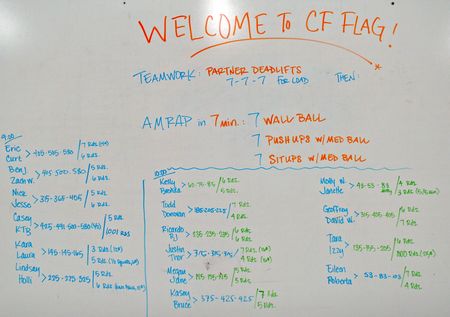 WELCOME TO CF FLAG!
TEAMWORK: PARTNER DEADLIFTS
7-7-7 FOR LOAD THEN:
AMRAP in 7 min.: 7 WALL BALL
7 PUSHUPS W/ MED BALL
7 SITUPS W/ MED BALL
9:00
Eric
Curt > 425-505-580 / 6 Rds.
Ben J
Zach W. > 415-500-580 / 5 Rds.
6 Rds.
Nick
Jesse > 315-365-455 / 5 Rds.
6 Rds.
Casey
KTB 5 Rds.
Kara
Laura > 145-145-165 / 3 Rds
5 Rds.
Lindsey
Holli > 225-275-325 / 5 Rds.
6 Rds.
10:00
Kelly
Brenda / 6 Rds.
6 Rds.
Todd
Donovan / 7 Rds.
4 Rds.
Ricardo
RJ > 235-235-235 / 6 Rds.
6 Rds.
Justin
Trav / 7 Rds.
4 Rds.
Megan
Jane > 135-155-155 / 5 Rds.
4 Rds.
Kasey
Bruce > 375-425-425 / 7 Rds
5 Rds.
Molly W.
Janette / 4 Rds.
3 Rds.
Geoffrey
David W. > 315-405-405 / 7 Rds.
6 Rds.
Tara
Izzy > 135-155-205 / 6 Rds.
Eileen
Roberta > 53-83-103 / 7 Rds.